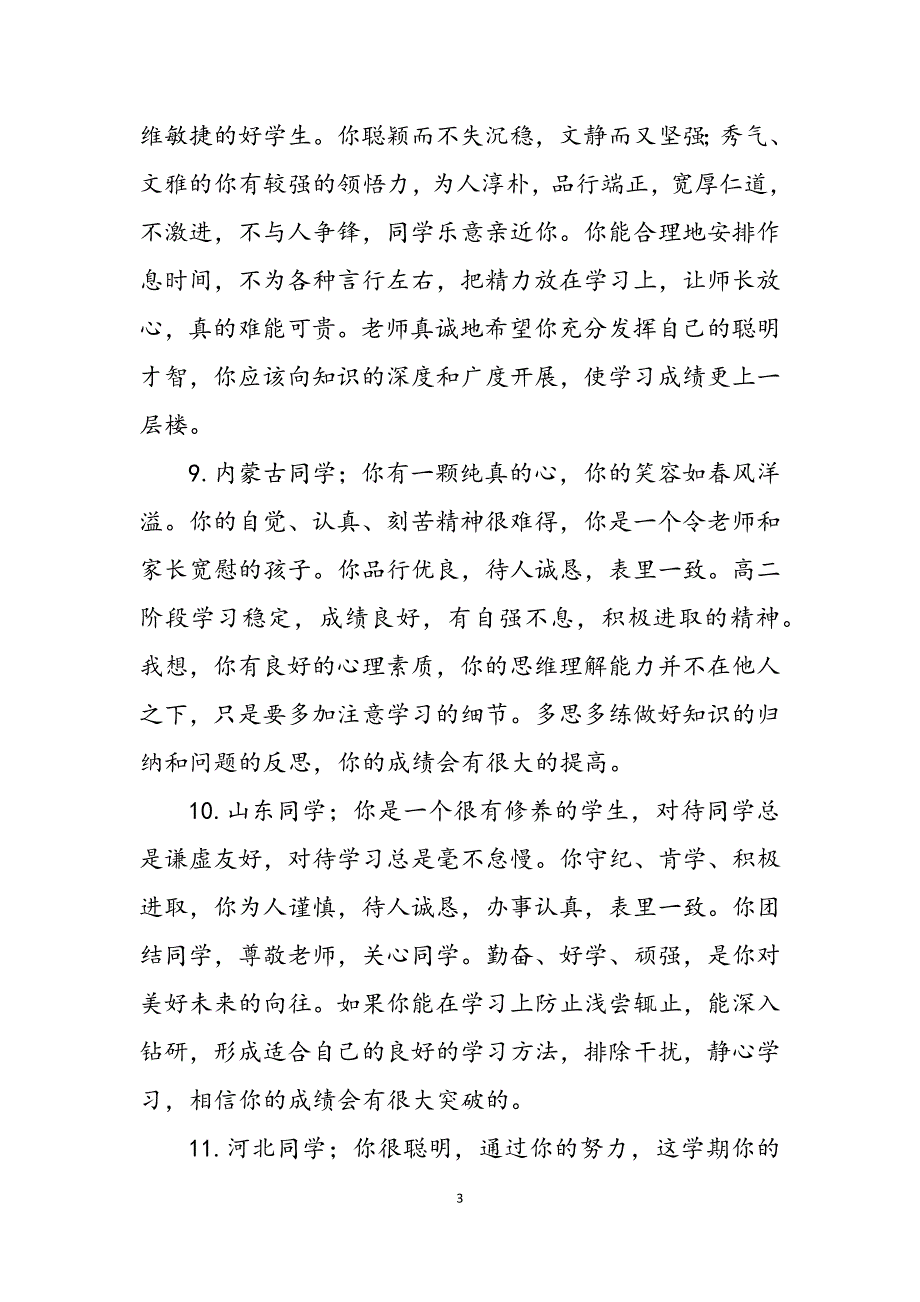 维敏捷的好学生。你聪颖而不失沉稳，文静而又坚强；秀气、
文雅的你有较强的领悟力，为人淳朴，品行端正，宽厚仁道，
不激进，不与人争锋，同学乐意亲近你。你能合理地安排作
息时间，不为各种言行左右，把精力放在学习上，让师长放
心，真的难能可贵。老师真诚地希望你充分发挥自己的聪明
才智，你应该向知识的深度和广度开展，使学习成绩更上一
层楼。
9.内蒙古同学；你有一颗纯真的心，你的笑容如春风洋
溢。你的自觉、认真、刻苦精神很难得，你是一个令老师和
家长宽慰的孩子。你品行优良，待人诚恳，表里一致。高二
阶段学习稳定，成绩良好，有自强不息，积极进取的精神。
我想，你有良好的心理素质，你的思维理解能力并不在他人
之下，只是要多加注意学习的细节。多思多练做好知识的归
纳和问题的反思，你的成绩会有很大的提高。
10.山东同学；你是一个很有修养的学生，对待同学总
是谦虚友好，对待学习总是毫不怠慢。你守纪、肯学、积极
进取，你为人谨慎，待人诚恳，办事认真，表里一致。你团
结同学，尊敬老师，关心同学。勤奋、好学、顽强，是你对
美好未来的向往。如果你能在学习上防止浅尝辄止，能深入
钻研，形成适合自己的良好的学习方法，排除干扰，静心学
习，相信你的成绩会有很大突破的。
11.河北同学；你很聪明，通过你的努力，这学期你的
3